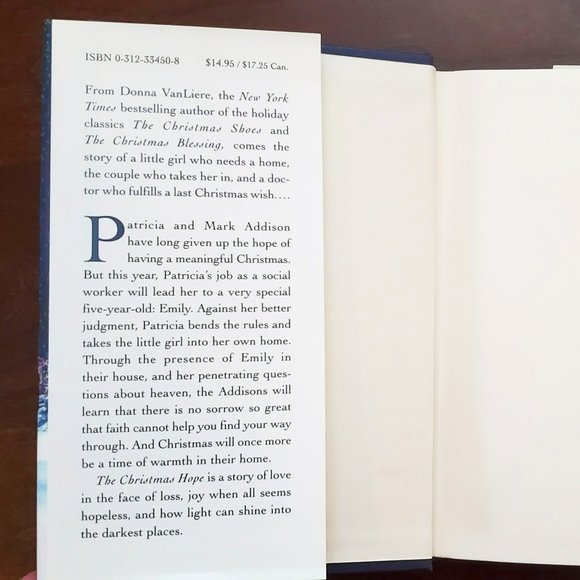 ISBN 0-312-33450-8 $14.95 / $17.25 Can.
From Donna VanLiere, the New York
Times bestselling author of the holiday
classics The Christmas Shoes and
The Christmas Blessing, comes the
story of a little girl who needs a home,
the couple who takes her in, and a doc-
tor who fulfills a last Christmas wish....
Patricia and Mark Addison
have long given up the hope of
having a meaningful Christmas.
But this year, Patricia's job as a social
worker will lead her to a very special
five-year-old: Emily. Against her better
judgment, Patricia bends the rules and
takes the little girl into her own home.
Through the presence of Emily in
their house, and her penetrating ques-
tions about heaven, the Addisons will
learn that there is no sorrow so great
that faith cannot help you find your way
through. And Christmas will once more
be a time of warmth in their home.
The Christmas Hope is a story of love
in the face of loss, joy when all seems
hopeless, and how light can shine into
the darkest places.